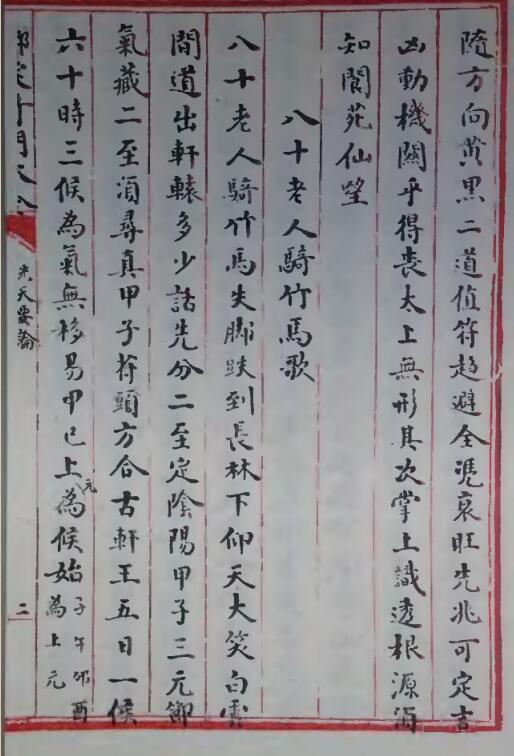 隨方向黃黑二道值符趋避全憑衰旺先兆可定吉
凶動機關乎得喪太上無形其次掌上識透根源須
知閬苑仙塋
八十老人騎竹馬歌
八十老人騎竹馬失脚跌到長林下仰天大笑白雲
間道出軒轅多少話先分二至定陰陽甲子三元節
氣藏二至須尋真甲子符頭方合古軒王五日一候
六十時三候為氣無移易甲己上元為候始子午卯酉為上元
奇門
天要論
二